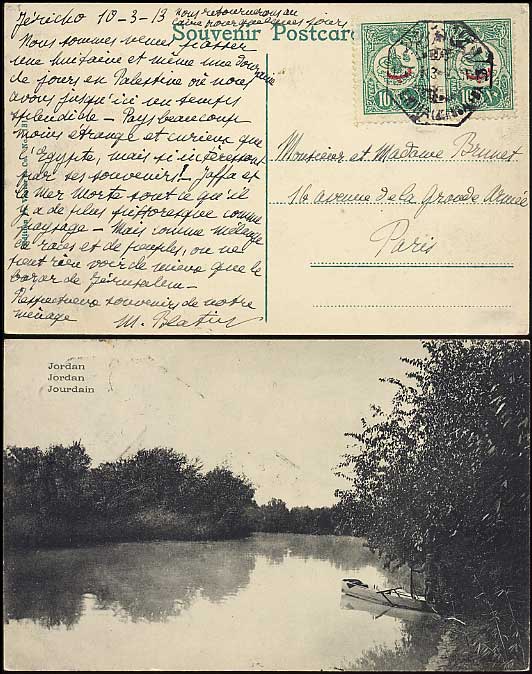 Jéricho 10-3-13 nous retournerons au
Caire pour quelques jours
Souvenir Postcard
Nous sommes venus passer
une huitaine et même une douzaine
de jours en Palestine où nous
avons jusqu'ici un temps
splendide – Pays beaucoup
moins étrange et curieux que
l'Égypte, mais si intéressant
par ses souvenirs! Jaffa et
la Mer Morte sont ce qu'il
y a de plus suggestif comme
paysage – Mais comme mélange
de races et de peuples, on ne
peut rien voir de mieux que le
bazar de Jérusalem –
Respectueux souvenirs de notre
ménage
10 10
Monsieur et Madame Brunet
16 avenue de la Grande Armée
Paris
Jordan
Jordan
Jourdain